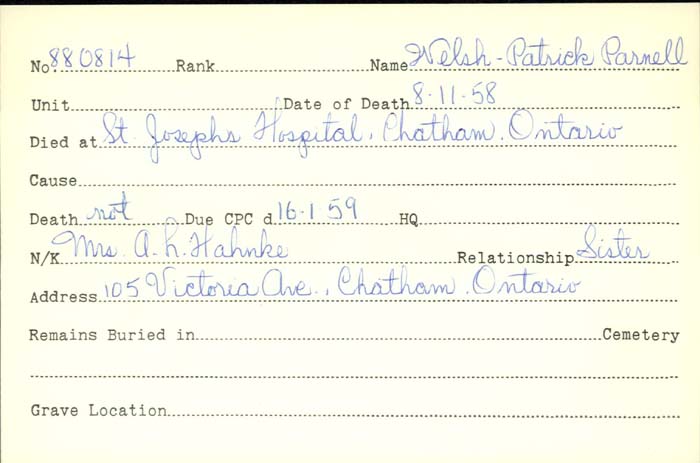 No. 880814 Rank Name Welsh - Patrick Parnell
Unit Date of Death 8-11-58
Died at St. Josephs Hospital, Chatham, Ontario
Cause
Death not Due CPC d 16-1-59 HQ
N/K Mrs. A. L. Hahnke Relationship Sister
Address 105 Victoria Ave., Chatham, Ontario
Remains Buried in Cemetery
Grave Location